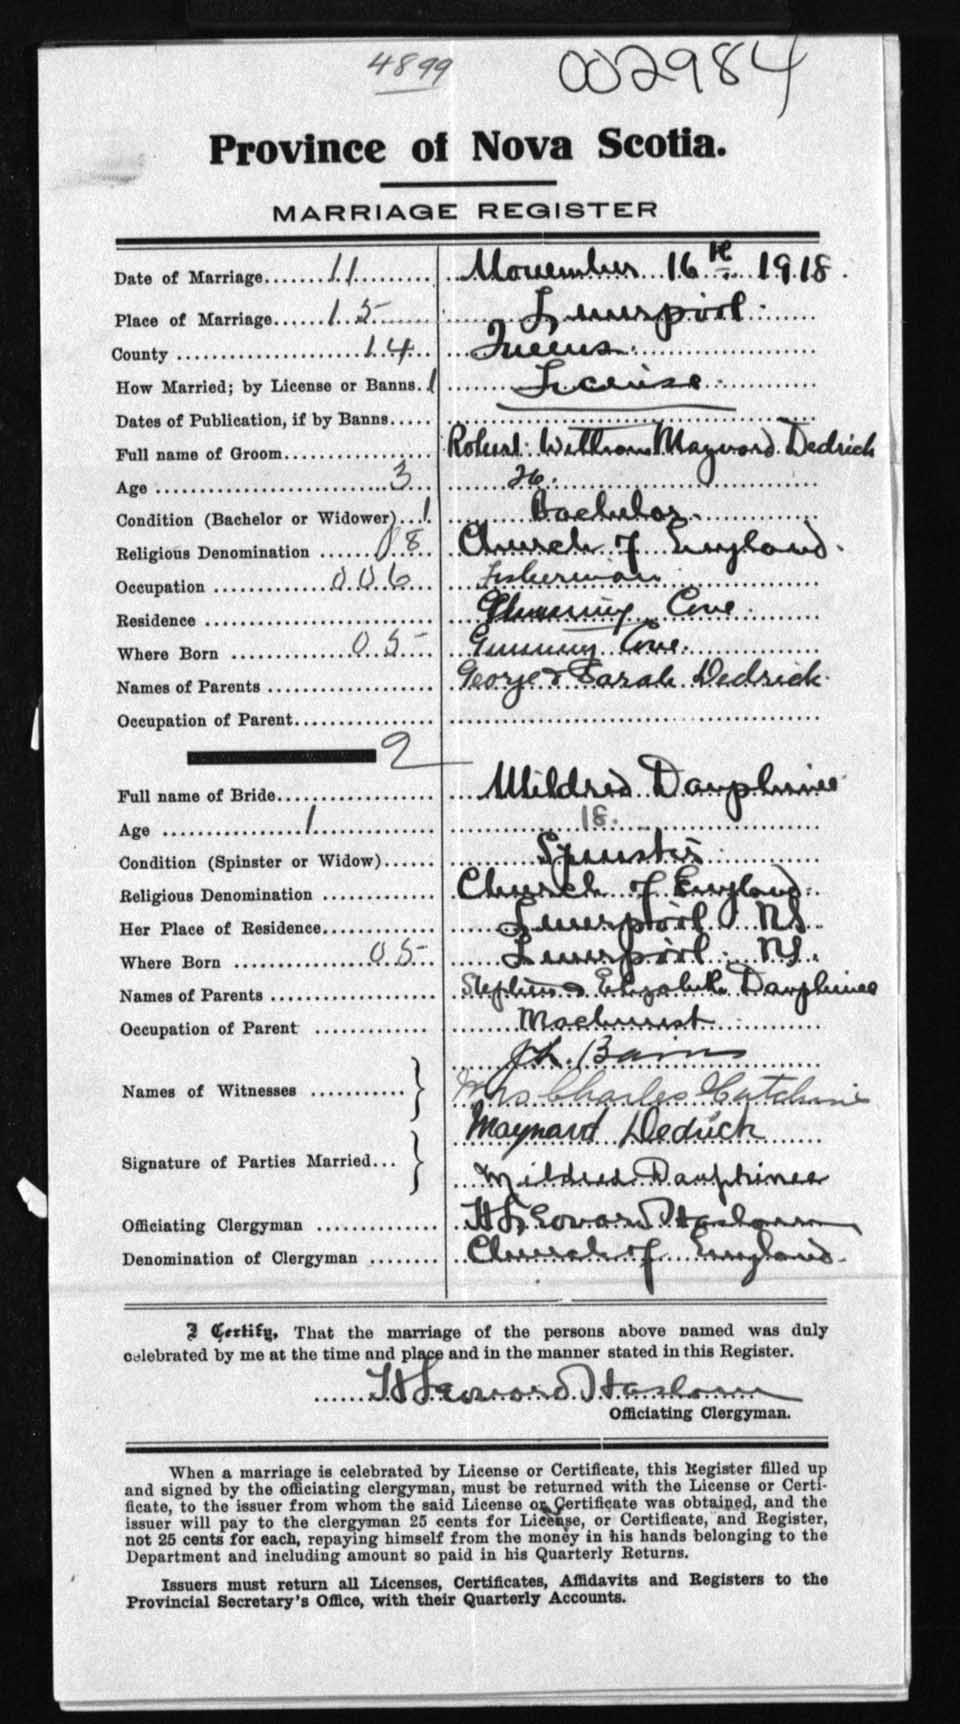 4899 002984
Province of Nova Scotia.
MARRIAGE REGISTER
Date of Marriage 11 November 16th 1918.
Place of Marriage 15 Liverpool
County 14 Queens
How Married; by License or Banns. 1 License
Dates of Publication, if by Banns
Full name of Groom Robert William Maynard Dedrick
Age 3 26.
Condition (Bachelor or Widower) 1 Bachelor
Religious Denomination 08 Church of England.
Occupation 006 Fisherman
Residence Gunning Cove
Where Born 05 Gunning Cove.
Names of Parents George & Sarah Dedrick
Occupation of Parent
2
Full name of Bride Mildred Dauphinee
Age 1 18.
Condition (Spinster or Widow) Spinster
Religious Denomination Church of England
Her Place of Residence Liverpool NS.
Where Born 05 Liverpool NS.
Names of Parents Stephen & Elizabeth Dauphinee
Occupation of Parent Machinist
J L. Bains
Names of Witnesses
Mrs Charles
Maynard Dedrick
Signature of Parties Married
Mildred Dauphinee
Officiating Clergyman H Leonard Haslam
Denomination of Clergyman Church of England.
I Certify, That the marriage of the persons above named was duly
celebrated by me at the time and place and in the manner stated in this Register.
H Leonard Haslam
Officiating Clergyman.
When a marriage is celebrated by License or Certificate, this Register filled up
and signed by the officiating clergyman, must be returned with the License or Certi-
ficate, to the issuer from whom the said License or Certificate was obtained, and the
issuer will pay to the clergyman 25 cents for License, or Certificate, and Register,
not 25 cents for each, repaying himself from the money in his hands belonging to the
Department and including amount so paid in his Quarterly Returns.
Issuers must return all Licenses, Certificates, Affidavits and Registers to the
Provincial Secretary's Office, with their Quarterly Accounts.